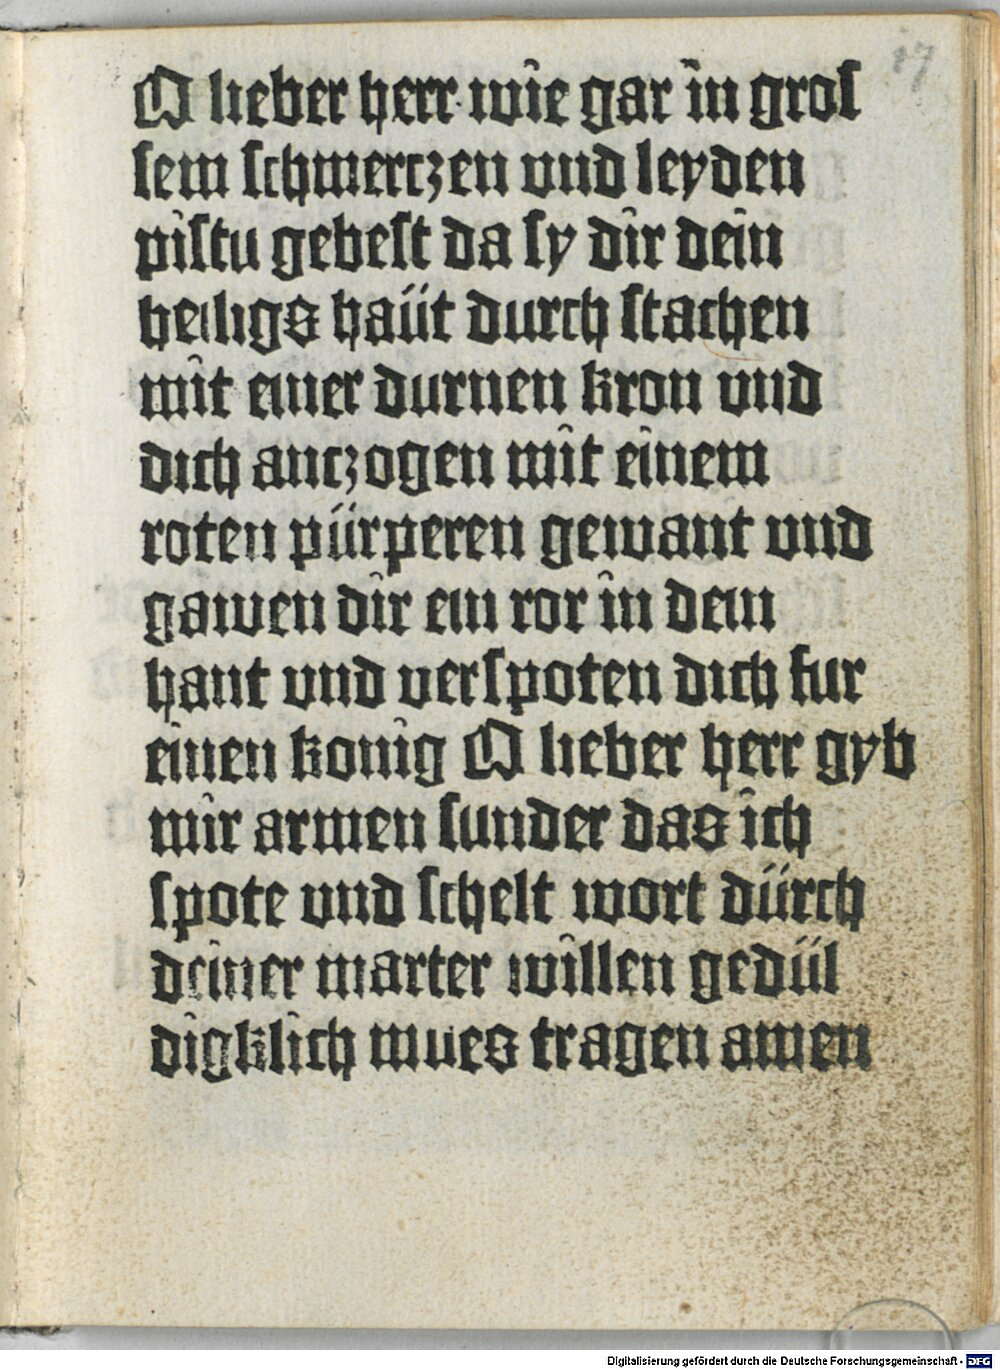 17
O lieber herr wie gar in groſ
ſem ſchmerczen vnd leyden
piſtu gebeſt da ſy dir dein
heiligs haüt durch ſtachen
mit einer durnen kron vnd
dich anczogen mit einem
roten pürperen gewant vnd
gawen dir ein ror in dein
hant vnd verſpoten dich fur
einen konig O lieber herr gyb
mir armen ſunder das ich
ſpote vnd ſchelt wort dürch
deiner marter willen gedül
digklich mues tragen amen
Digitalisierung gefördert durch die Deutsche Forschungsgemeinschaft - DFG